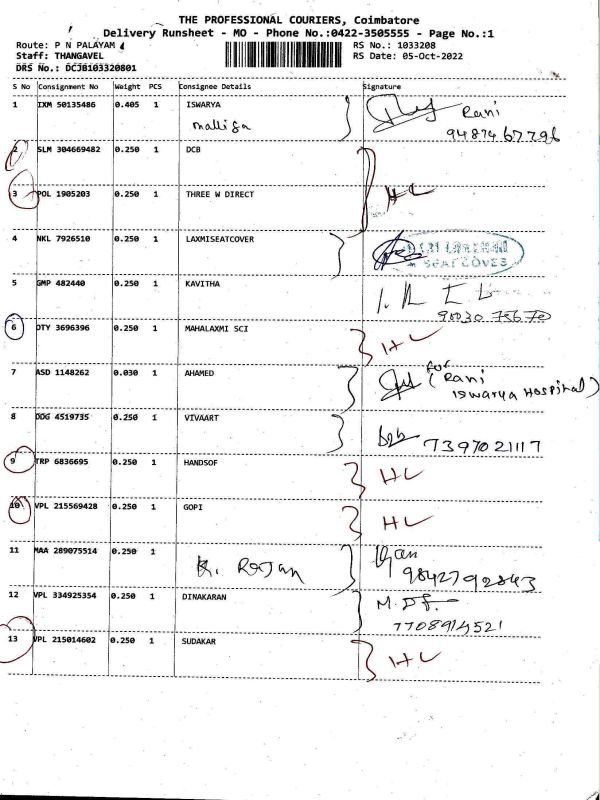 THE PROFESSIONAL COURIERS, Coimbatore
Delivery Runsheet - MO - Phone No.:0422-3505555 - Page No.:1
Route: P N PALAYAM
RS No.: 1033208
Staff: THANGAVEL
RS Date: 05-Oct-2022
DRS No.: DCJB103320801
S No Consignment No Weight PCS Consignee Details Signature
1 IXM 50135486 0.405 1 ISWARYA Rani
Malliga 9487467796
2 SLM 304669482 0.250 1 DCB
3 POL 1905203 0.250 1 THREE W DIRECT HL
4 NKL 7926510 0.250 1 LAXMISEATCOVER
SEAT COVES
5 GMP 482440 0.250 1 KAVITHA
98030 75670
6 OTY 3696396 0.250 1 MAHALAXMI SCI HL
7 ASD 1148262 0.030 1 AHAMED for (Rani
Iswarya Hospital)
8 DDG 4519735 0.250 1 VIVAART 7397021117
9 TRP 6836695 0.250 1 HANDSOF HL
10 VPL 215569428 0.250 1 GOPI HL
11 MAA 289075514 0.250 1 K. Rajan
9842792843
12 VPL 334925354 0.250 1 DINAKARAN
7708914521
13 VPL 215014602 0.250 1 SUDAKAR HL